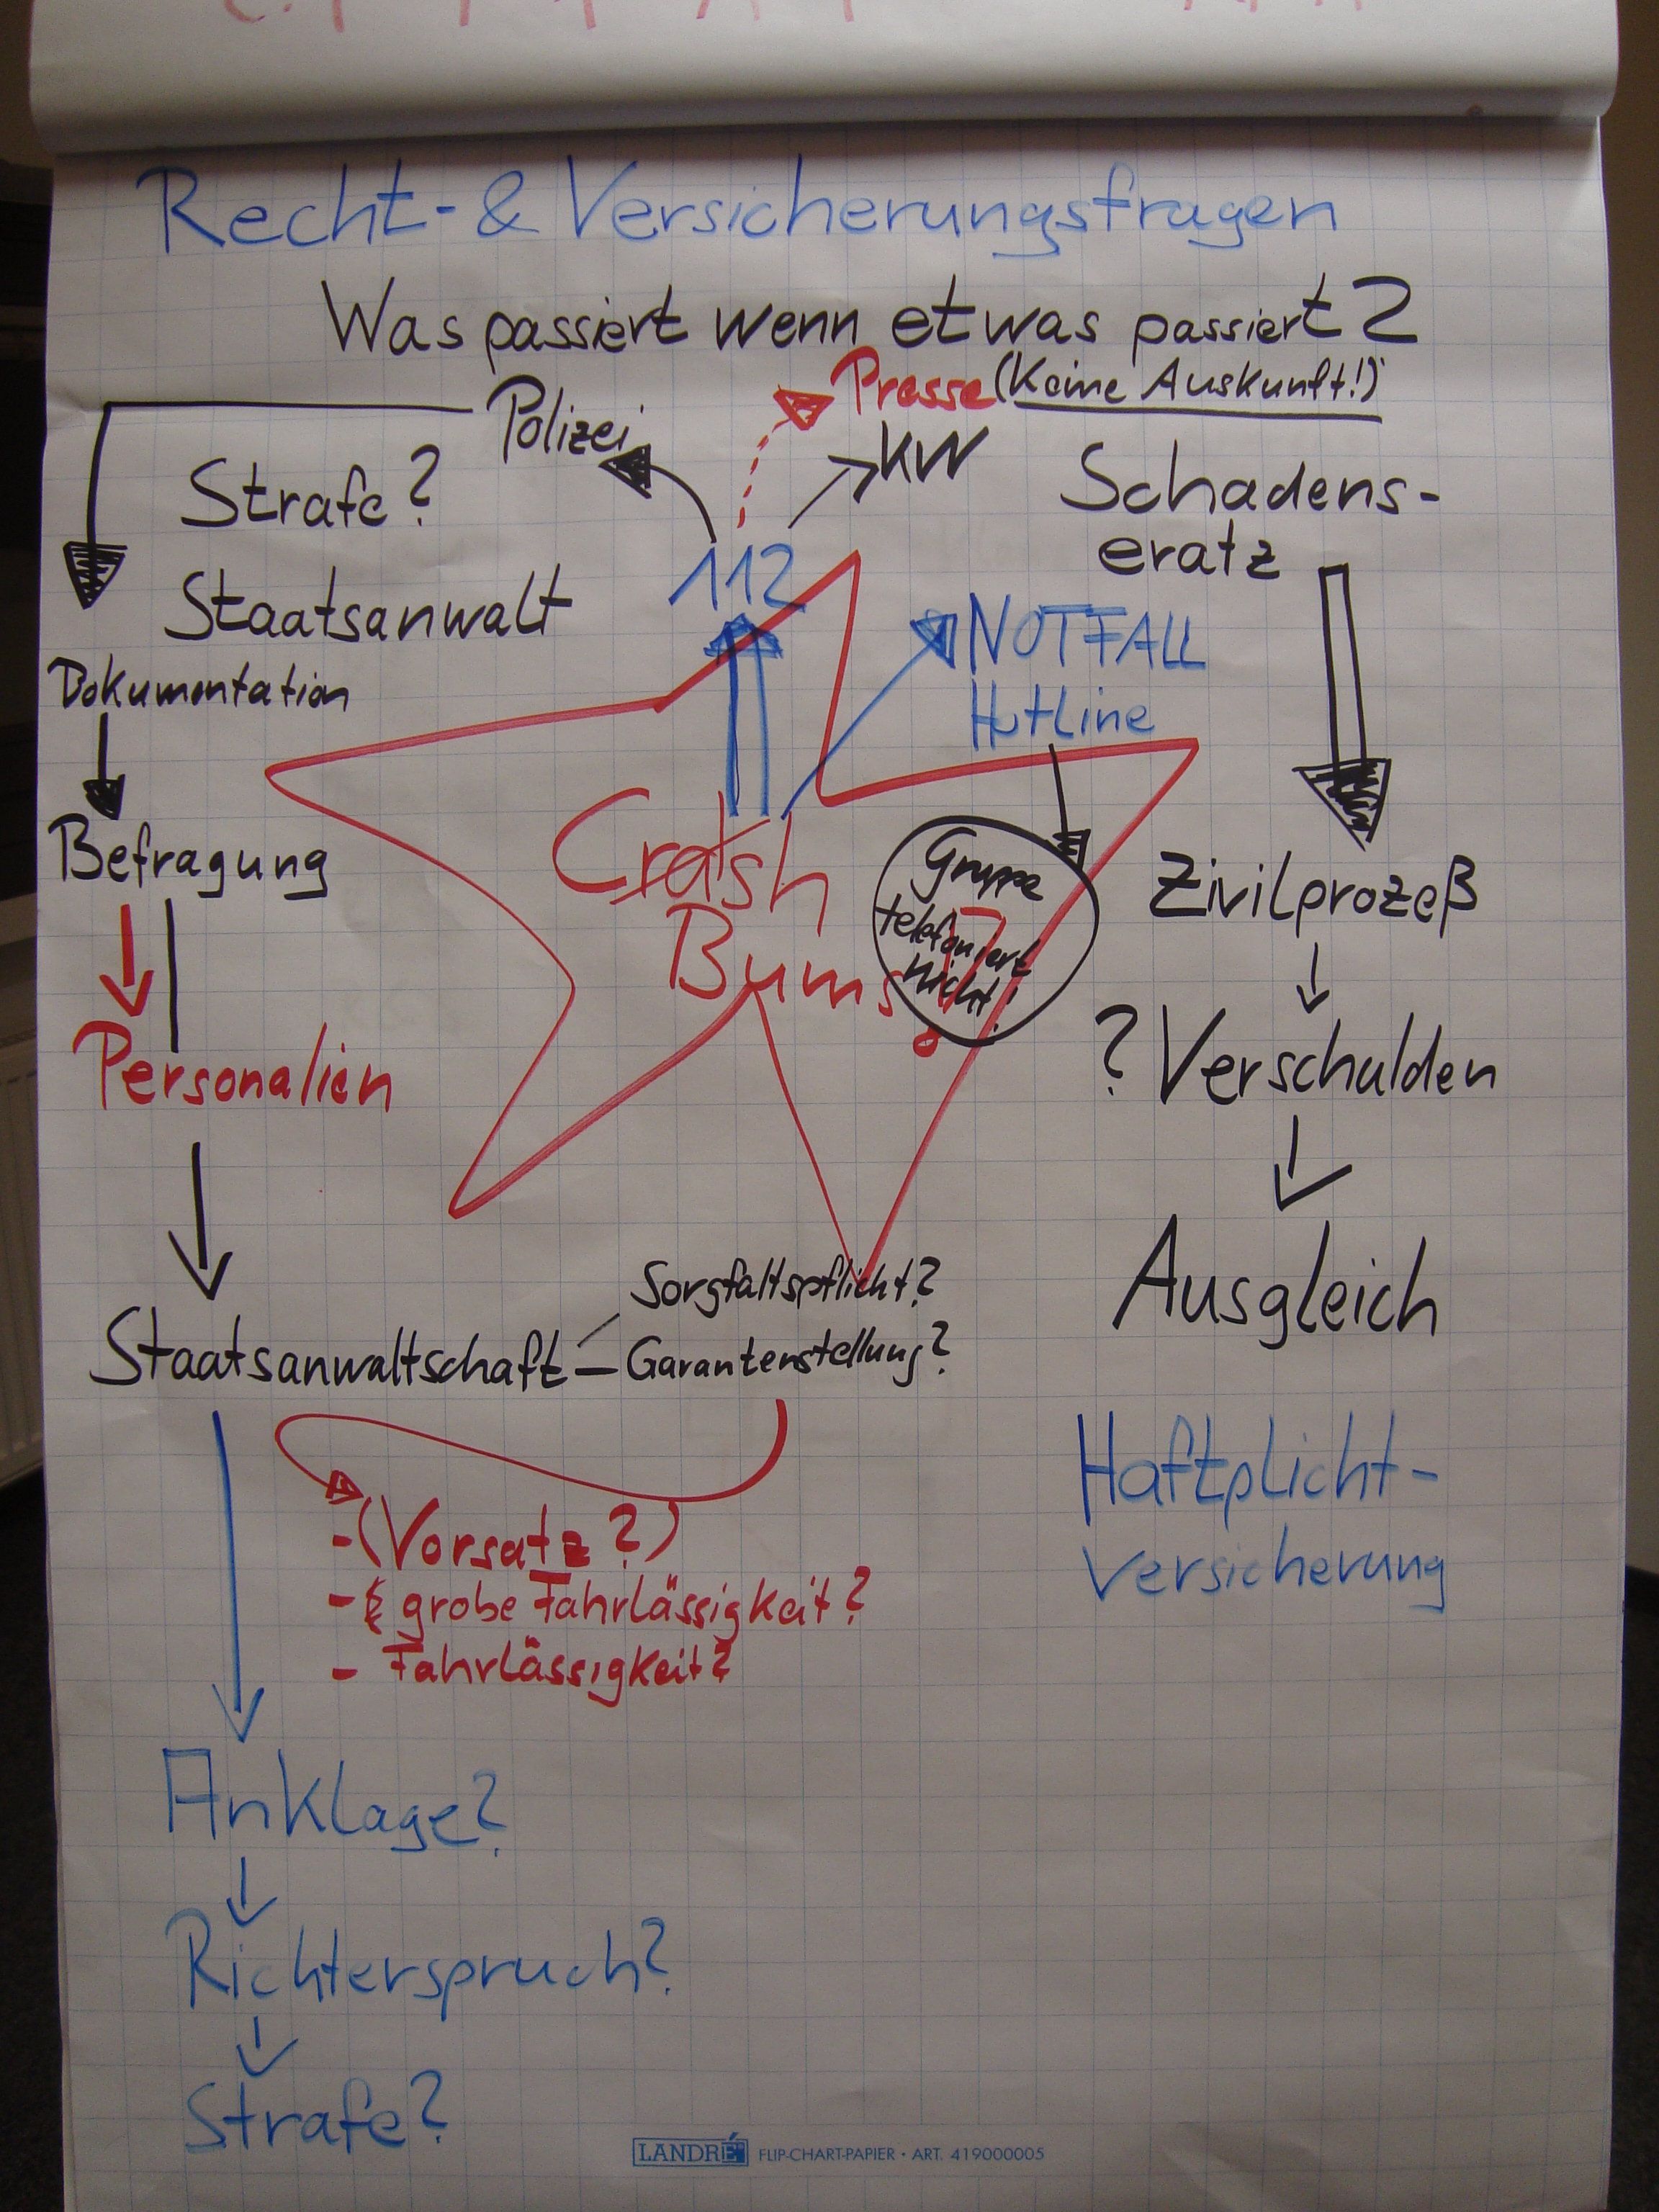 Recht- & Versicherungsfragen
Was passiert wenn etwas passiert?
Presse (Keine Auskunft!)
Polizei
KW
Strafe?
Schadens-
eratz
112
Staatsanwalt
NOTFALL
Hotline
Dokumentation
Crash
Bums!
Gruppe
telefoniert
nicht!
Befragung
Zivilprozeß
Personalien
? Verschulden
Ausgleich
Sorgfaltspflicht?
Staatsanwaltschaft - Garantenstellung?
Haftplicht-
versicherung
- (Vorsatz?)
- grobe Fahrlässigkeit?
- Fahrlässigkeit?
Anklage?
Richterspruch?
Strafe?
LANDRÉ FLIP-CHART-PAPIER • ART. 419000005